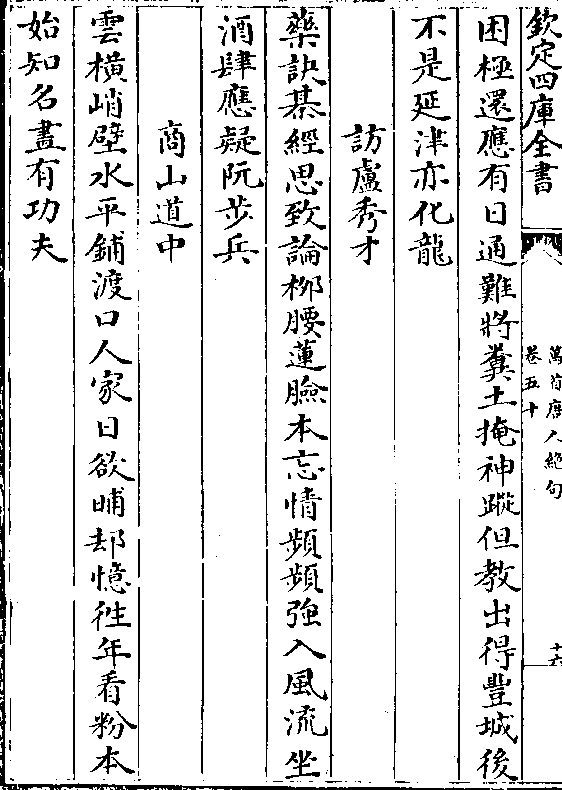 欽定四庫全書
萬首唐人絶句
卷五十
十六
困極還應有日通難將糞土掩神蹤但教出得豐城後
不是延津亦化龍
訪盧秀才
藥訣棊經思致論柳腰蓮臉本忘情頻頻強入風流坐
酒肆應疑阮步兵
商山道中
雲橫峭壁水平鋪渡口人家日欲晡却憶徃年看粉本
始知名畫有功夫